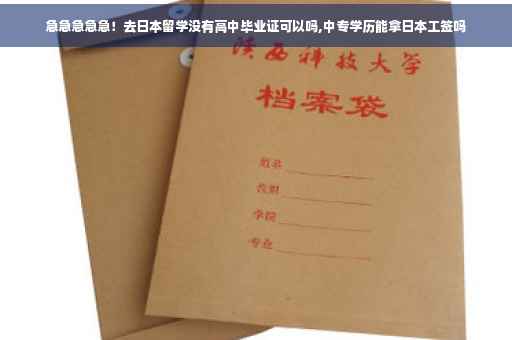 急急急急急！去日本留学没有高中毕业证可以吗,中专学历能拿日本工签吗
陕西科技大学
档案袋
姓名
学院
专业